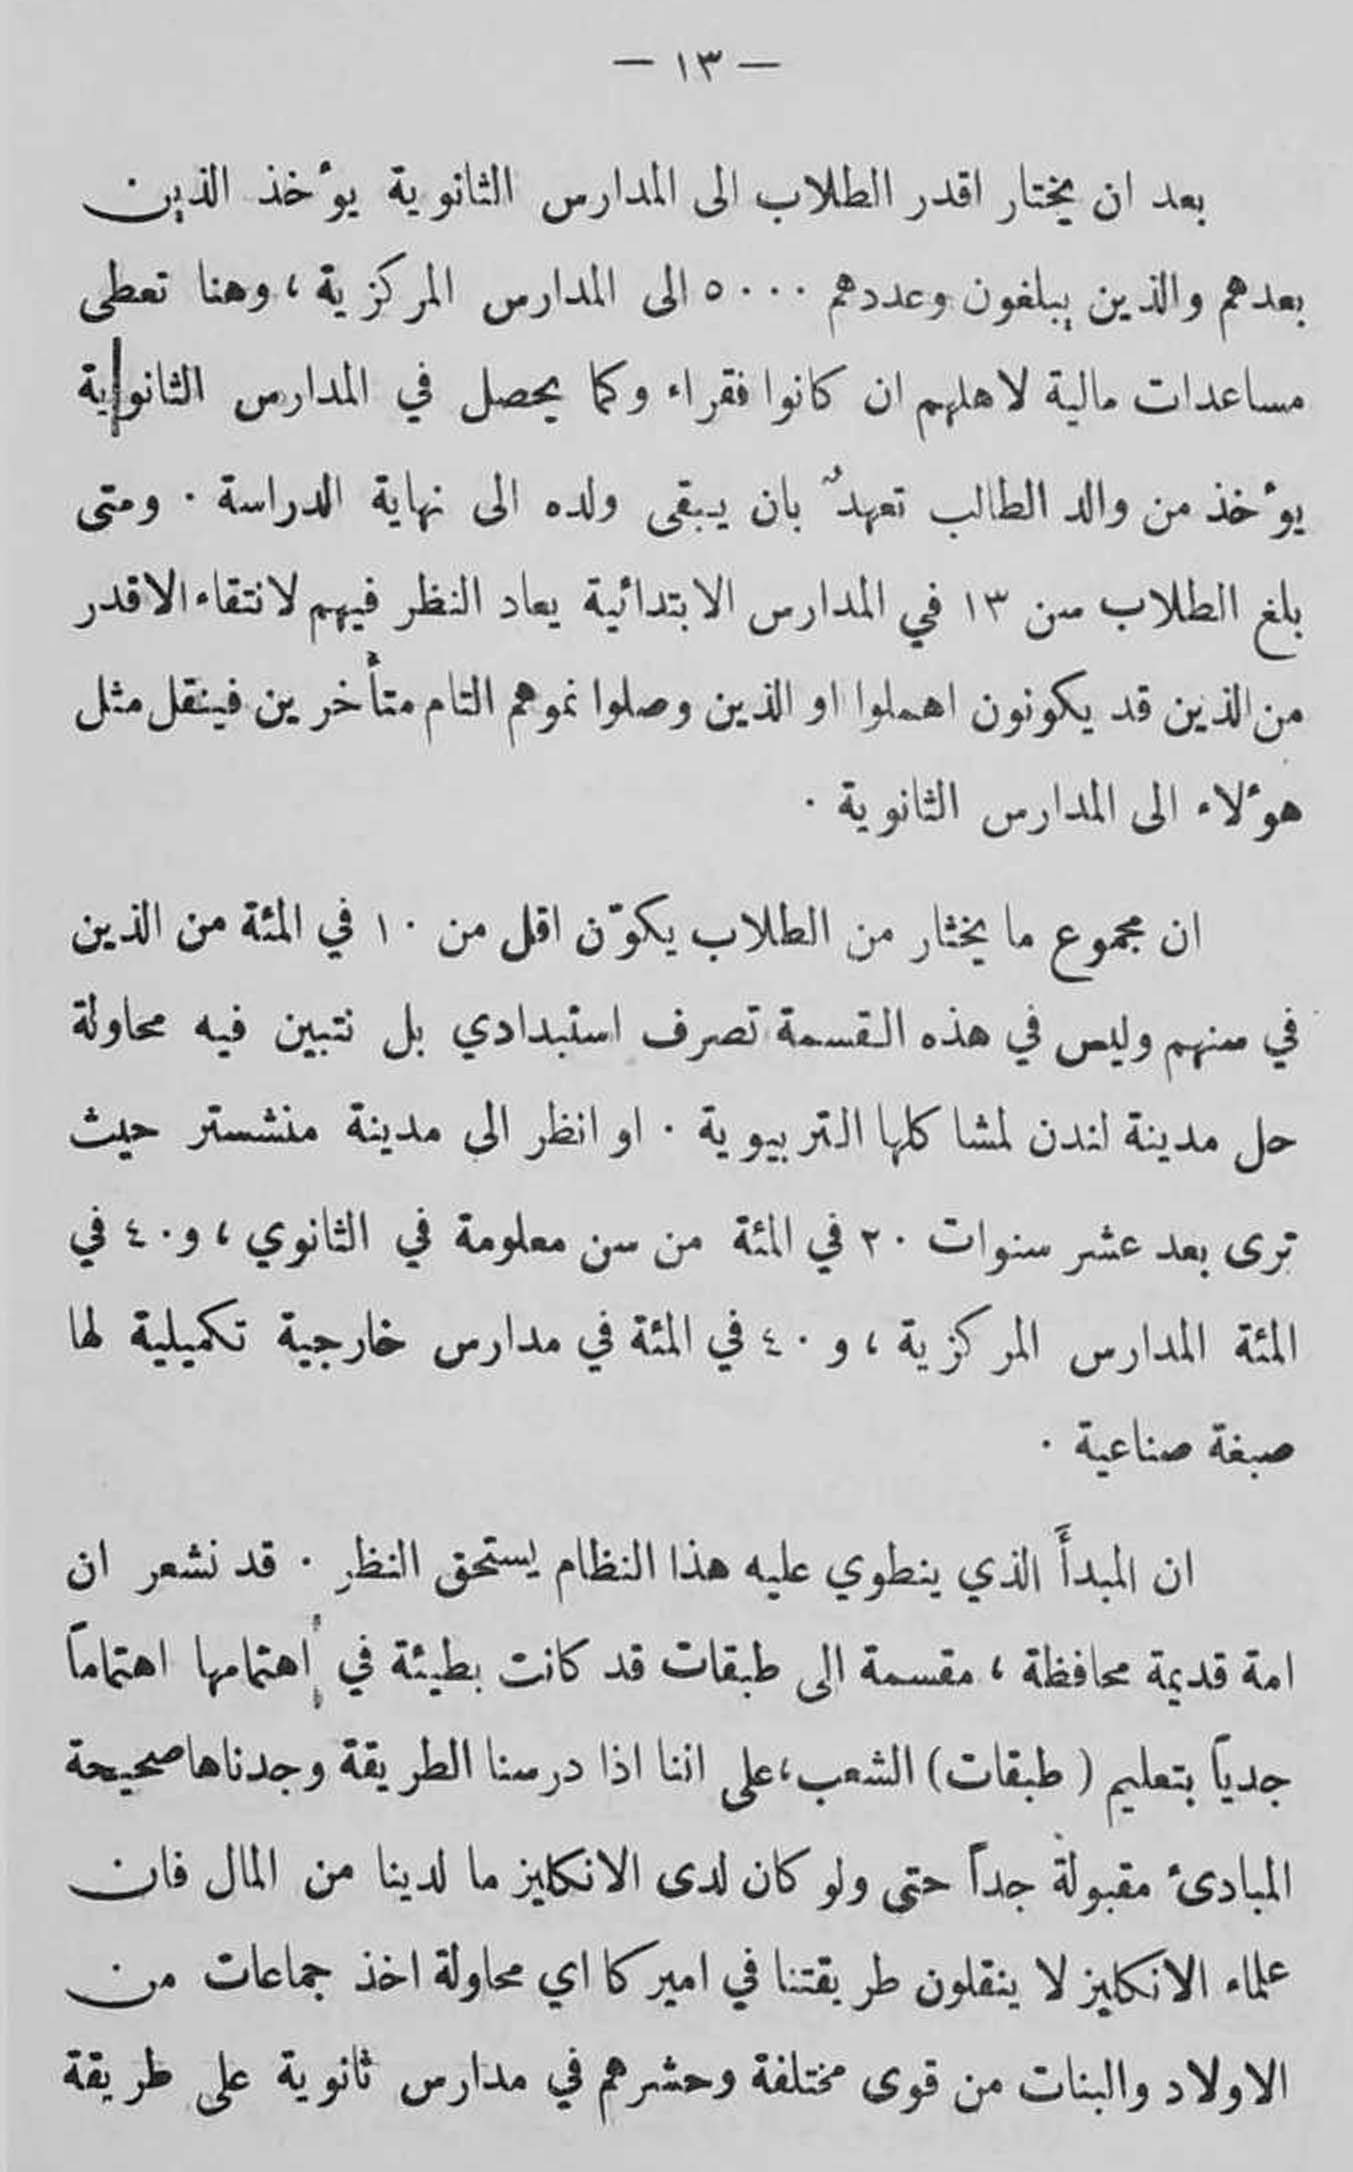 — ١٣ —
بعد ان يختار اقدر الطلاب الى المدارس الثانوية يوٴخذ الذين
بعدهم والذين يبلغون وعددهم ٥٠٠٠ الى المدارس المركزية ، وهنا تعطى
مساعدات مالية لاهلهم ان كانوا فقراء وكما يحصل في المدارس الثانوية
يوٴخذ من والد الطالب تعهدٌ بان يبقى ولده الى نهاية الدراسة . ومتى
بلغ الطلاب سن ١٣ في المدارس الابتدائية يعاد النظر فيهم لانتقاء الاقدر
من الذين قد يكونون اهملوا او الذين وصلوا نموهم التام متأخرين فينقل مثل
هوٴلاء الى المدارس الثانوية .
ان مجموع ما يختار من الطلاب يكوّن اقل من ١٠ في المئة من الذين
في سنهم وليس في هذه القسمة تصرف استبدادي بل نتبين فيه محاولة
حل مدينة لندن لمشاكلها التربيوية . او انظر الى مدينة منشستر حيث
ترى بعد عشر سنوات ٢٠ في المئة من سن معلومة في الثانوي ، و٤٠ في
المئة المدارس المركزية ، و ٤٠ في المئة في مدارس خارجية تكميلية لها
صبغة صناعية .
ان المبدأَ الذي ينطوي عليه هذا النظام يستحق النظر . قد نشعر ان
امة قديمة محافظة ، مقسمة الى طبقات قد كانت بطيئة في اهتمامها اهتماماً
جدياً بتعليم ( طبقات ) الشعب ، على اننا اذا درسنا الطريقة وجدناها صحيحة
المبادىٴ مقبولة جداً حتى ولو كان لدى الانكليز ما لدينا من المال فان
علماء الانكليز لا ينقلون طريقتنا في اميركا اي محاولة اخذ جماعات من
الاولاد والبنات من قوى مختلفة وحشرهم في مدارس ثانوية على طريقة